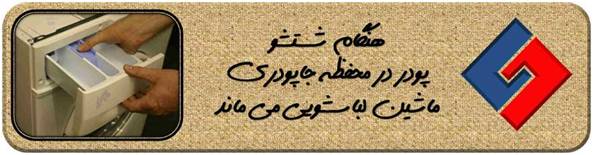 هنگام شستشو
پودر در محفظه جاپودری
ماشین لباسشویی می ماند